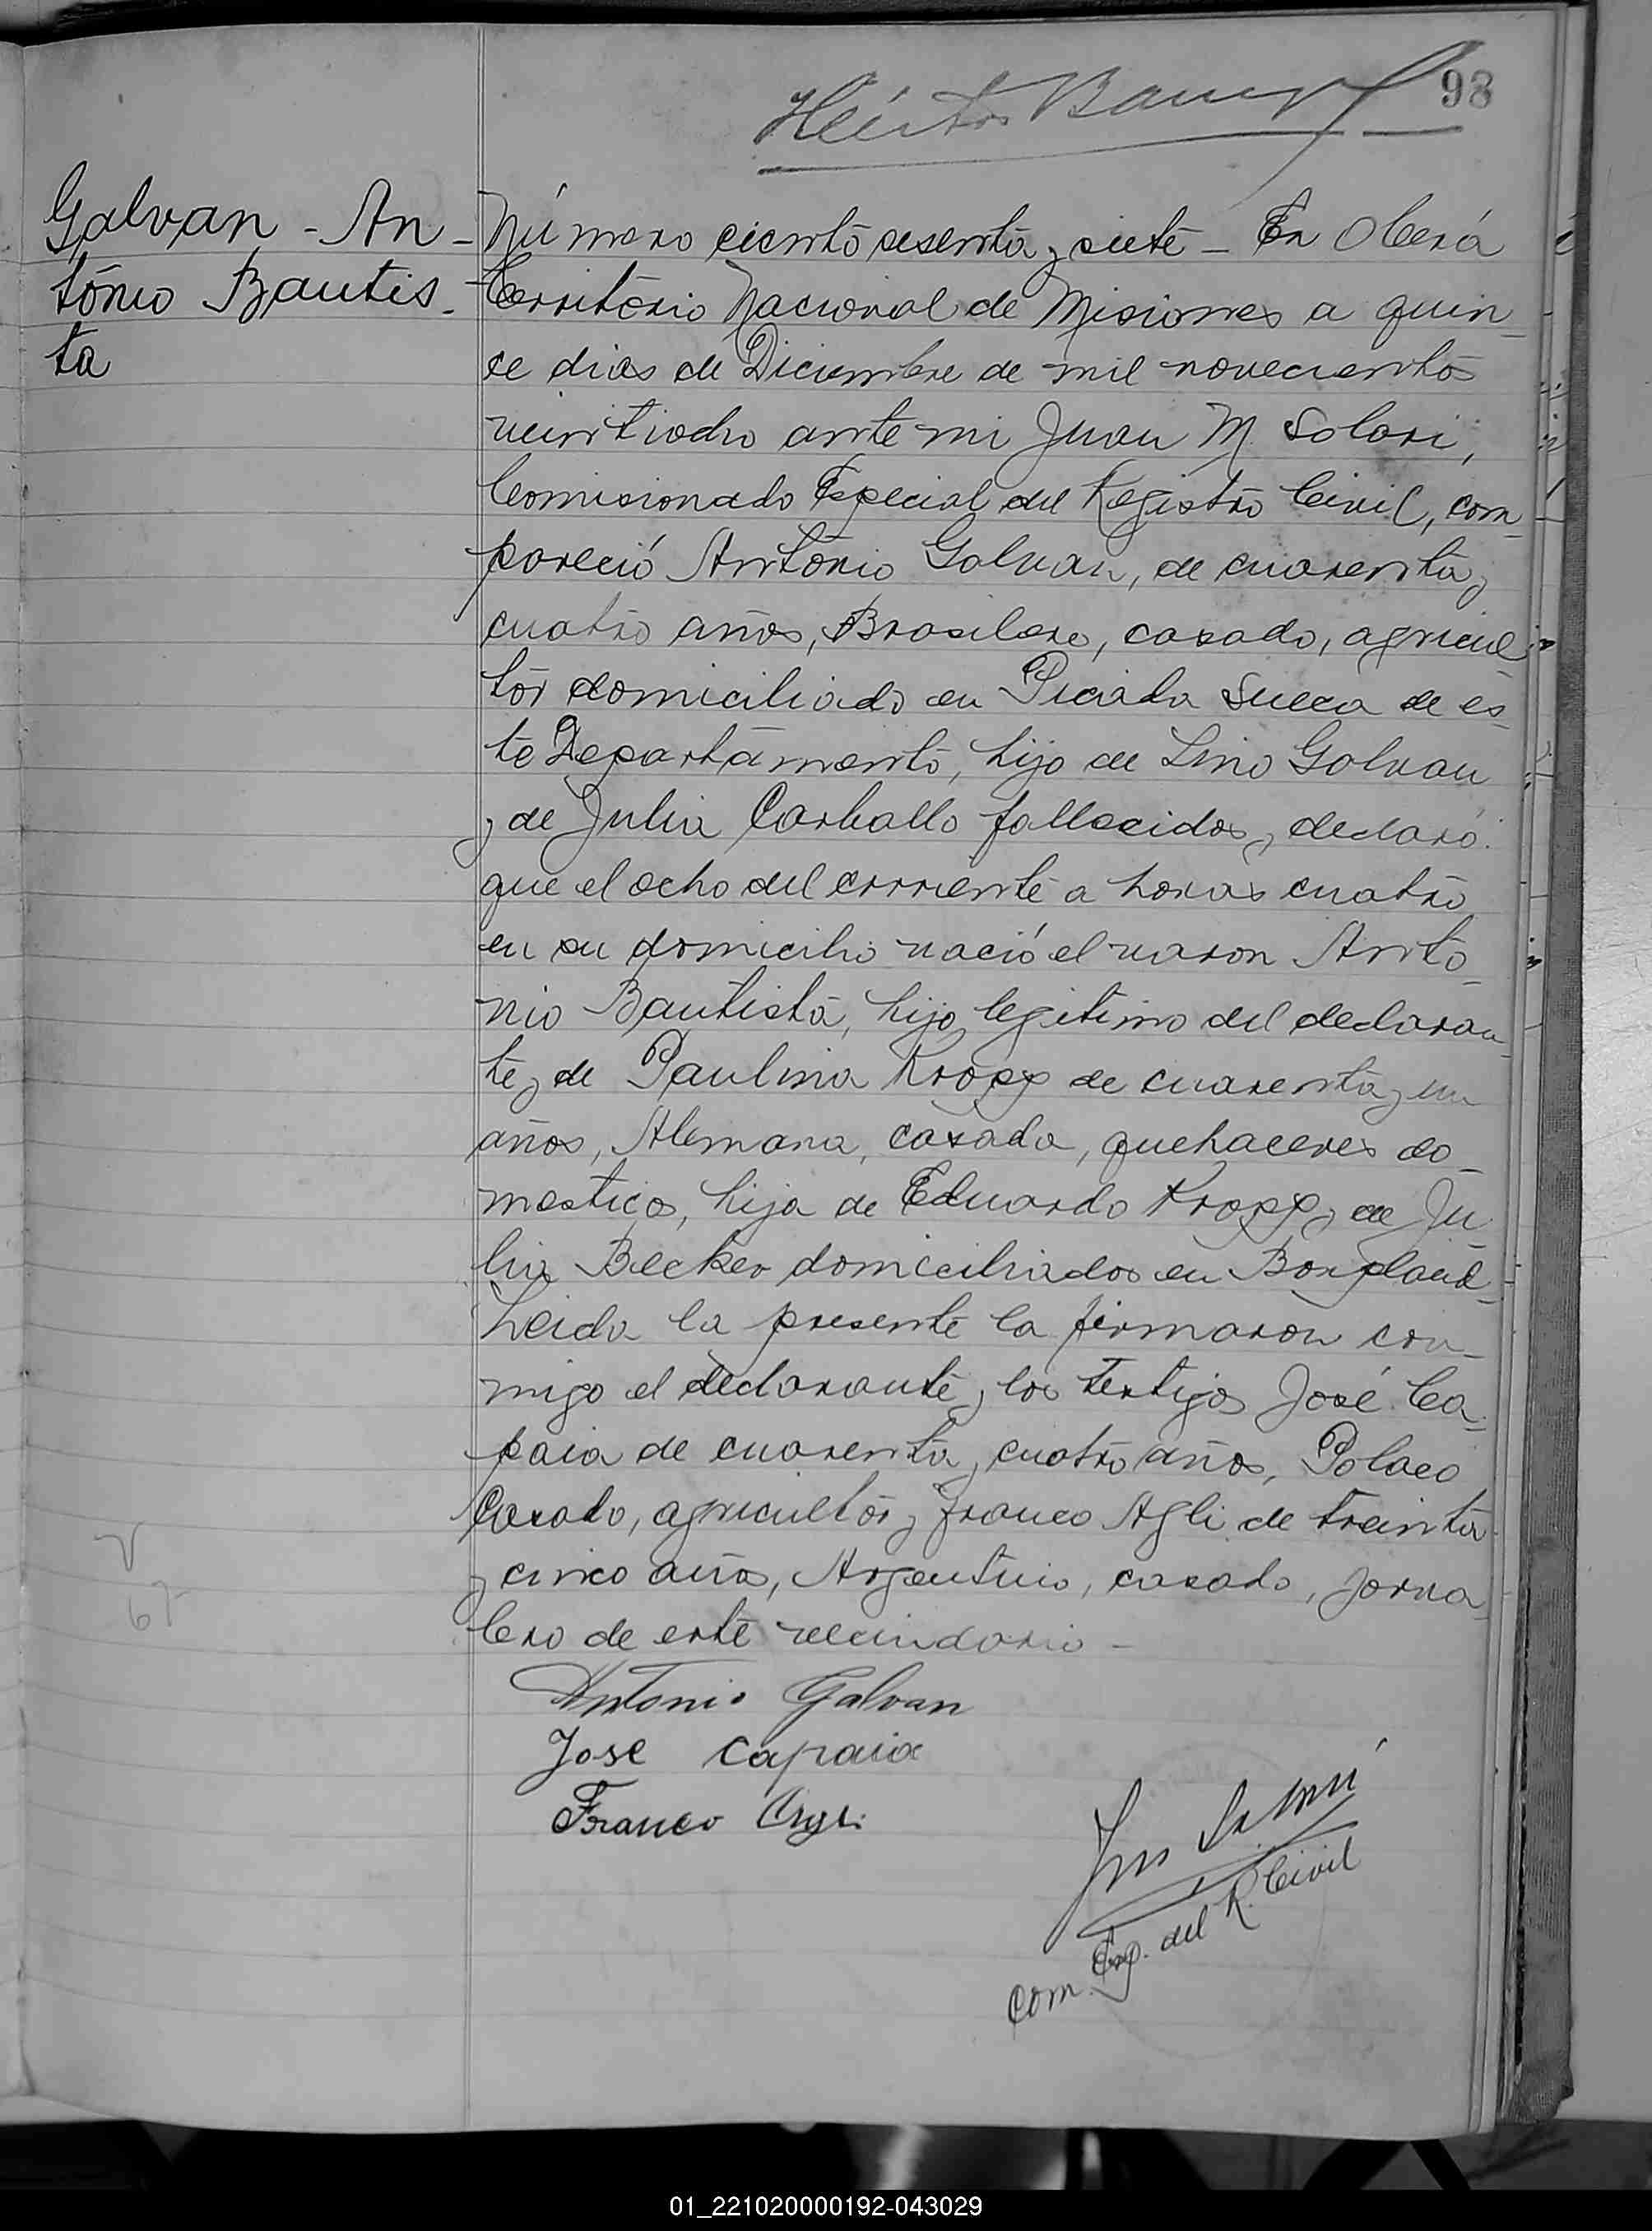 98
Héctor
Galvan - An -
tonio Bautis -
ta
Número ciento sesenta y siete - En Oberá
Territorio Nacional de Misiones a quin
ce dias de Diciembre de mil novecientos
veintiocho ante mi Juan M. Solari,
Comisionado Especial del Registro Civil, com
pareció Antonio Galvan, de cuarenta y
cuatro años, Brasilero, casado, agricul
tor domiciliado en Picada Sueca de és
te Departamento, hijo de Lino Galvan
y de Julia Carballo fallecidos y declaró:
que el ocho del corriente a horas cuatro
en su domicilio nació el varon Anto
nio Bautista, hijo legitimo del declaran
te y de Paulina Kropp de cuarenta y un
años, Alemana, casada, quehaceres do -
mesticos, hija de Eduardo Kropp y de Ju
lia Becker domiciliados en Bonpland -
Leida la presente la firmaron con -
migo el declarante y los testigos José Ca -
paia de cuarenta y cuatro años, Polaco
Casado, agricultor y Franco Agli de treinta
y cinco años, Argentino, casado, jorna
lero de este vecindario -
Antonio Galvan
Jose Capaia
Franco
Com. Esp. del R. Civil
01_221020000192-043029